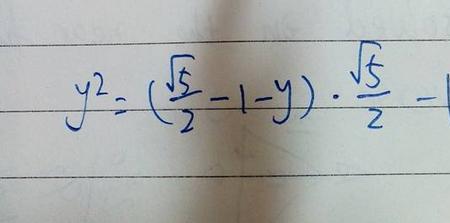 y² = (√5/2 - 1 - y) · √5/2 - 1